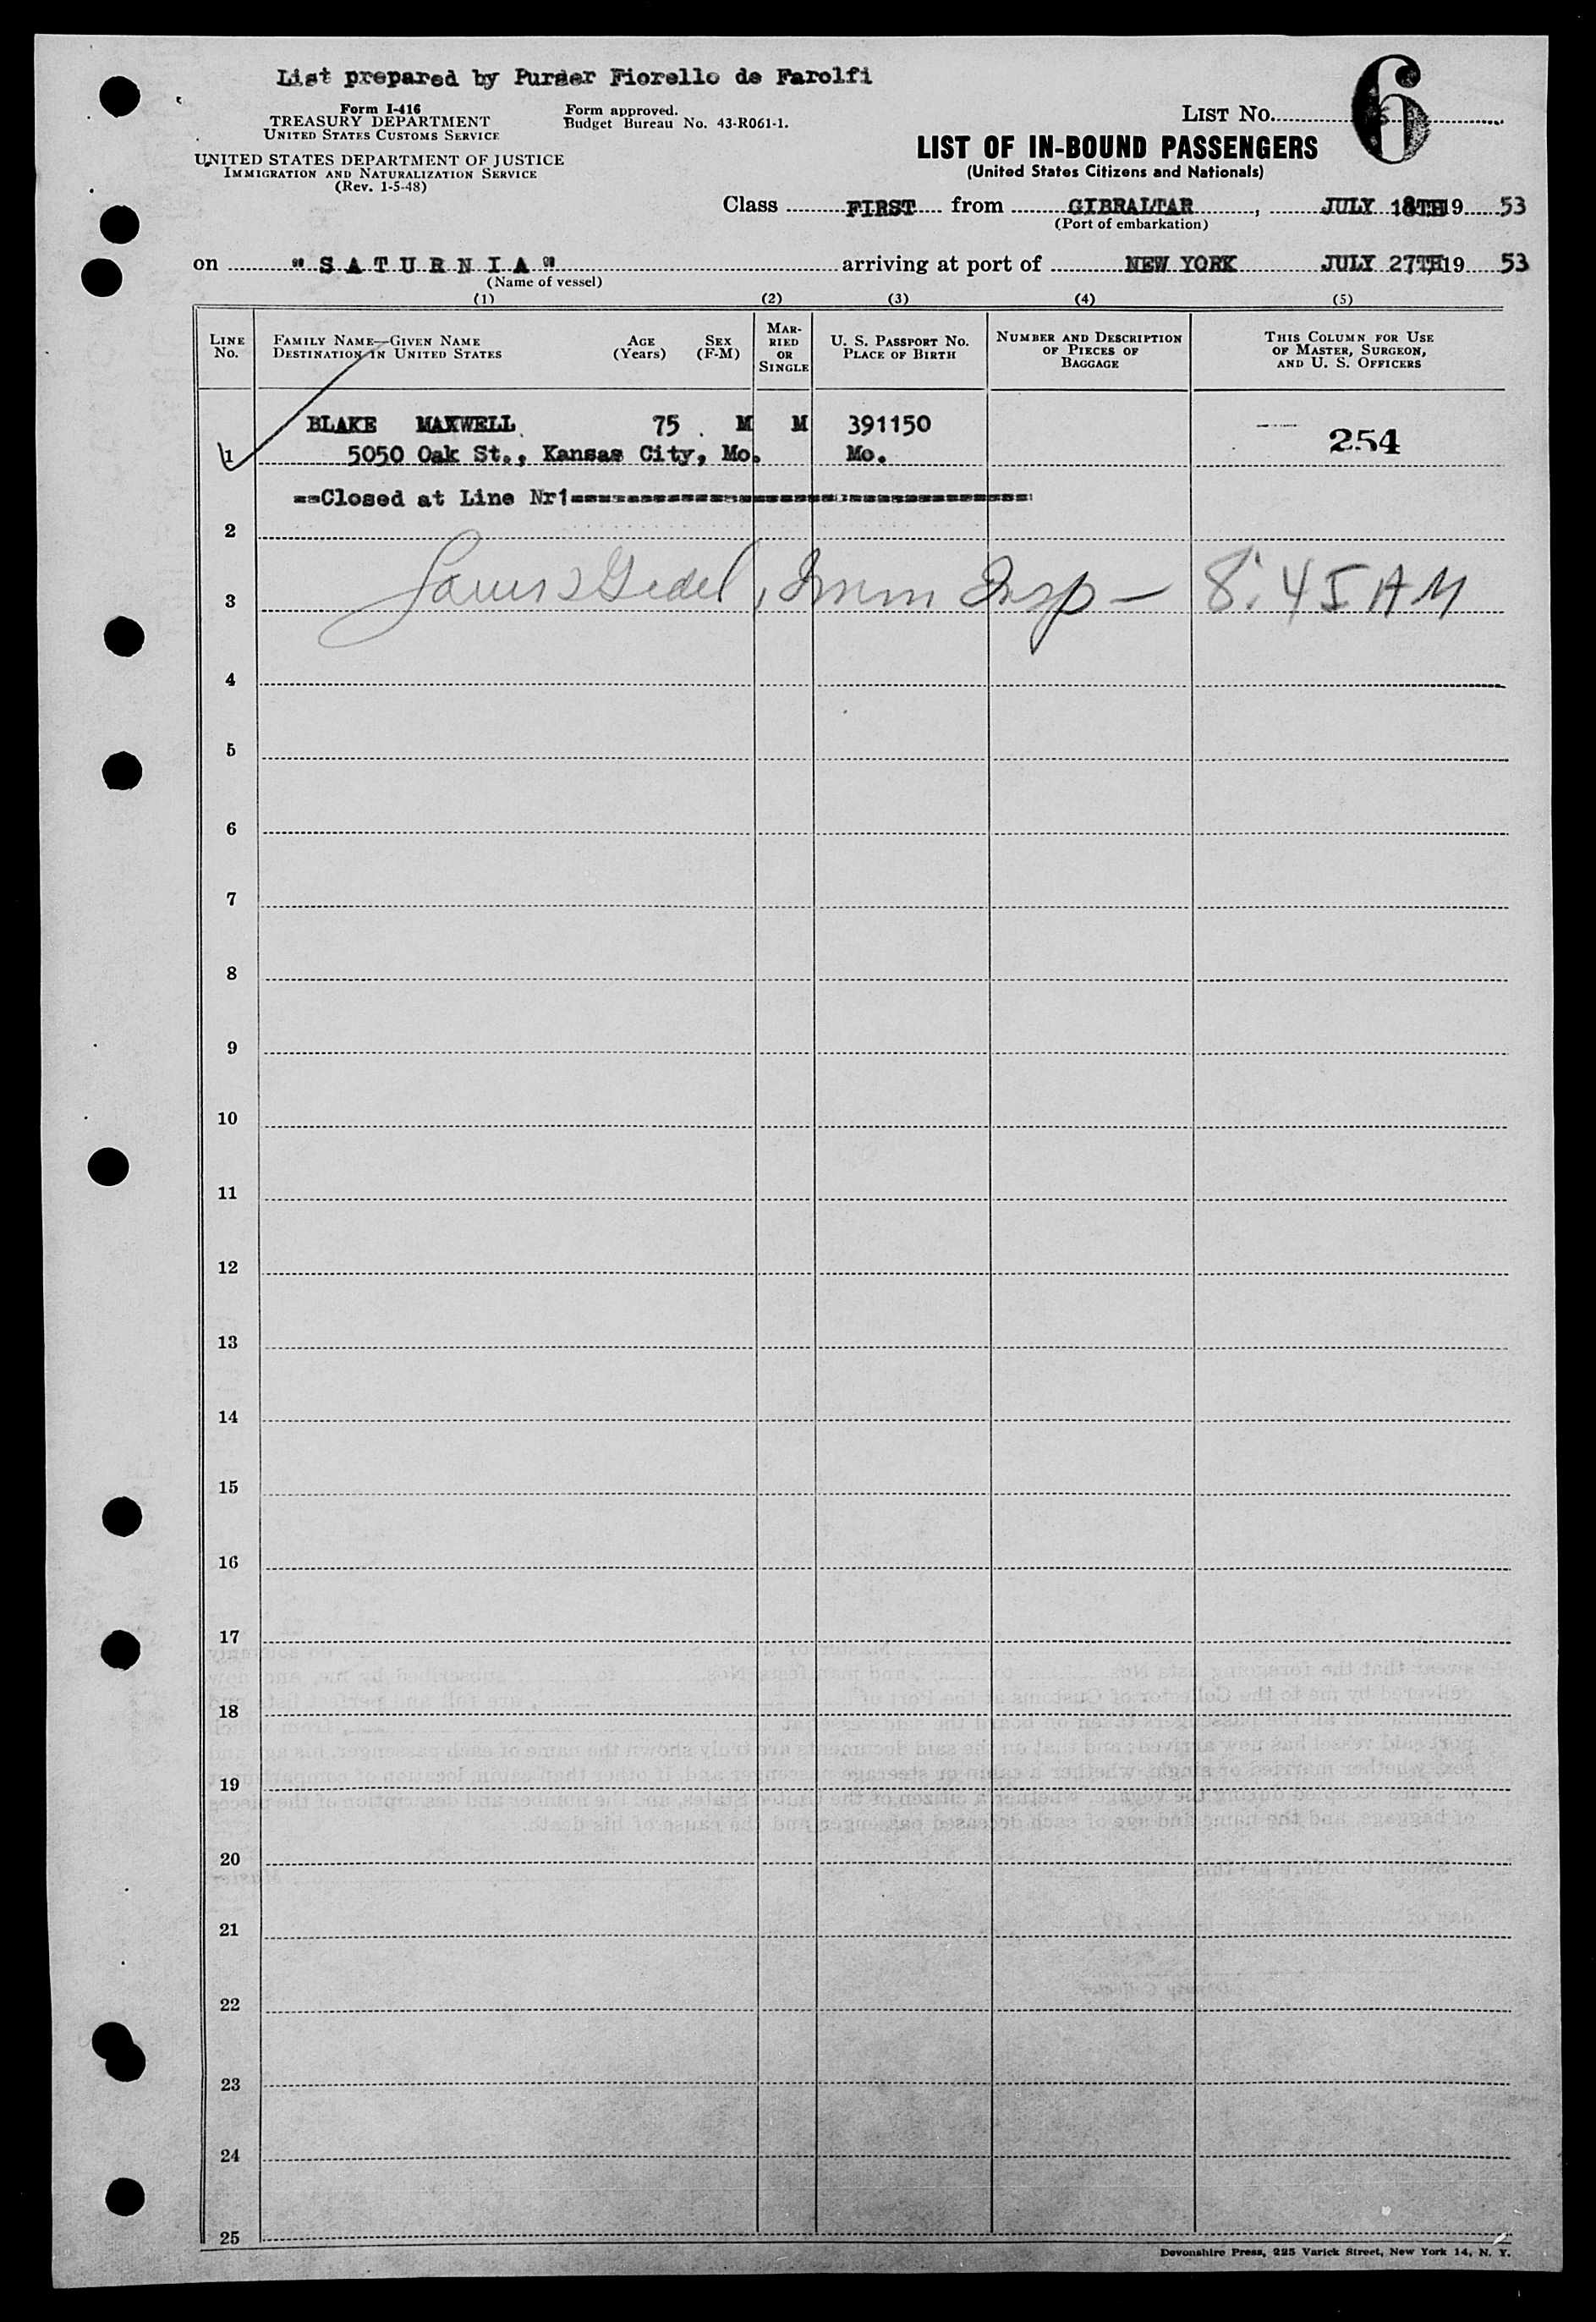 List prepared by Purser Fiorello de Farolfi
Form I-416
TREASURY DEPARTMENT
UNITED STATES CUSTOMS SERVICE
UNITED STATES DEPARTMENT OF JUSTICE
IMMIGRATION AND NATURALIZATION SERVICE
(Rev. 1-5-48)
Form approved.
Budget Bureau No. 43-R061-1.
LIST No. 6
LIST OF IN-BOUND PASSENGERS
(United States Citizens and Nationals)
Class FIRST from GIBRALTAR, JULY 18TH 19 53
(Port of embarkation)
on "SATURNIA" arriving at port of NEW YORK JULY 27TH, 19 53
(Name of vessel)
(1) (2) (3) (4) (5)
LINE No.
FAMILY NAME—GIVEN NAME
DESTINATION IN UNITED STATES
AGE (Years)
SEX (F-M)
MARRIED OR SINGLE
U. S. PASSPORT No.
PLACE OF BIRTH
NUMBER AND DESCRIPTION OF PIECES OF BAGGAGE
THIS COLUMN FOR USE OF MASTER, SURGEON, AND U. S. OFFICERS
BLAKE MAXWELL 75 M M 391150 254
1 5050 Oak St., Kansas City, Mo. Mo.
==Closed at Line Nr1==
2
3 Imm Insp — 8:45 AM
4
5
6
7
8
9
10
11
12
13
14
15
16
17
18
19
20
21
22
23
24
25
Devonshire Press, 225 Varick Street, New York 14, N. Y.